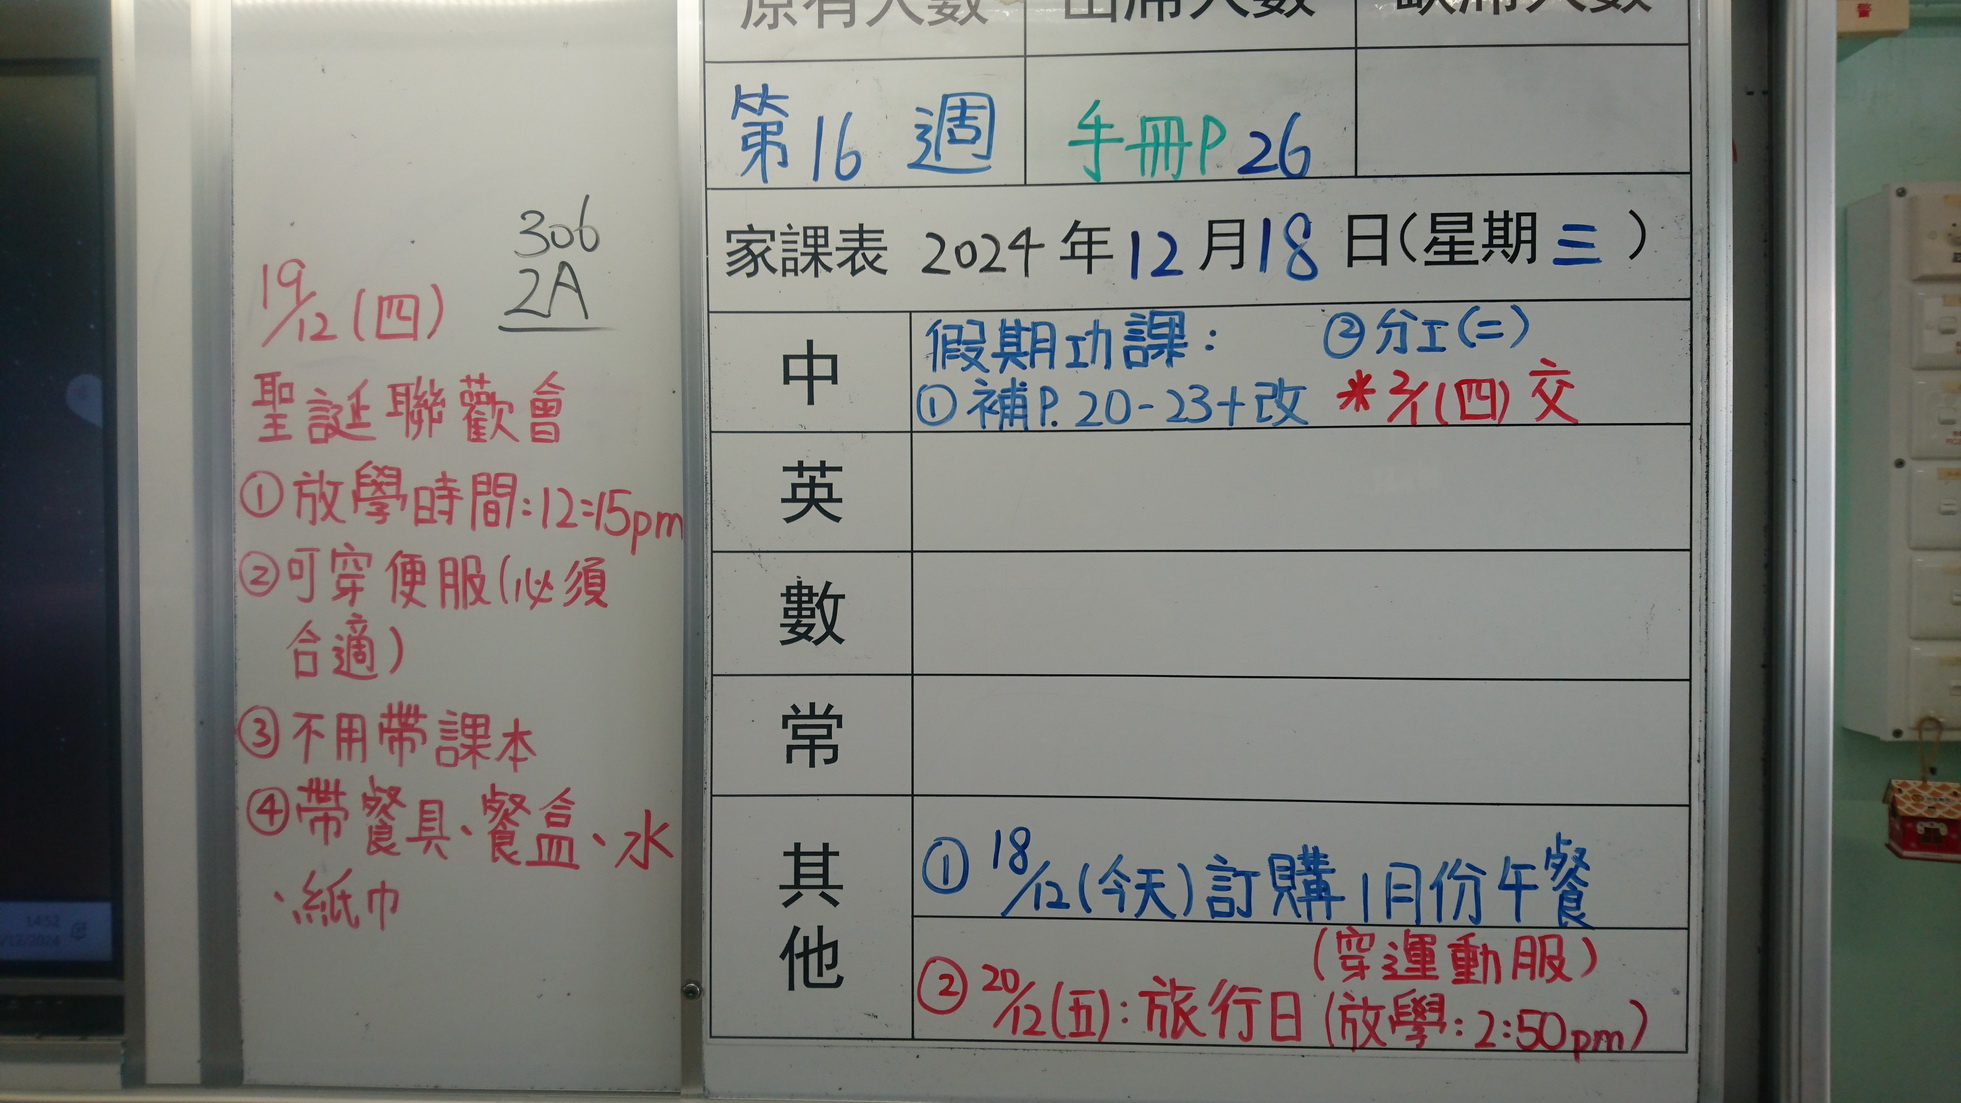 306
2A
19/12(四)
聖誕聯歡會
①放學時間:12:15pm
②可穿便服(必須
合適)
③不用帶課本
④帶餐具、餐盒、水
、紙巾
原有人數 出席人數 缺席人數
第16週 手冊P.26
家課表 2024年12月18日(星期三)
中 假期功課: ②分工(二)
①補P.20-23+改 *2/1(四)交
英
數
常
其他
①18/12(今天)訂購1月份午餐
(穿運動服)
②20/12(五):旅行日(放學:2:50pm)
14:52